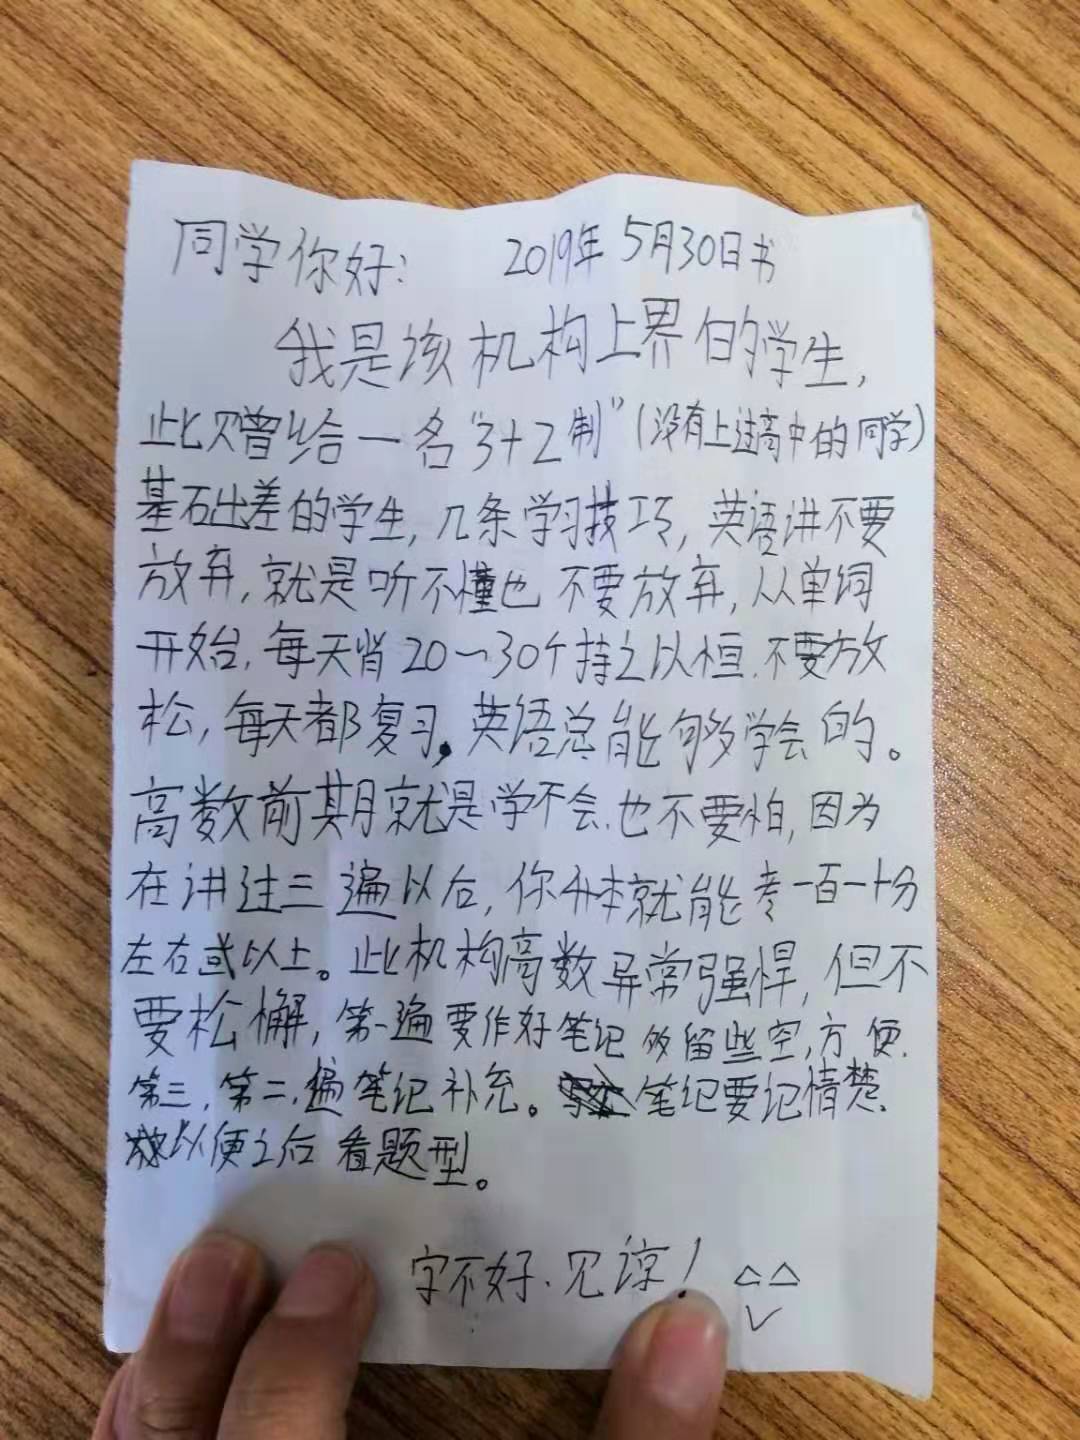 同学你好： 2019年5月30日书
我是该机构上界的学生，
此赠给一名"3+2制"（没有上过高中的同学）
基础差的学生，几条学习技巧，英语讲不要
放弃，就是听不懂也不要放弃，从单词
开始，每天背20~30个持之以恒.不要放
松，每天都复习，英语总能够学会的。
高数前期就是学不会.也不要怕，因为
在讲过三遍以后，你升本就能考一百一十分
左右或以上。此机构高数异常强悍，但不
要松懈，第一遍要作好笔记多留些空，方便.
第三.第二.遍笔记补充。笔记要记清楚、
以便之后看题型。
字不好.见谅！